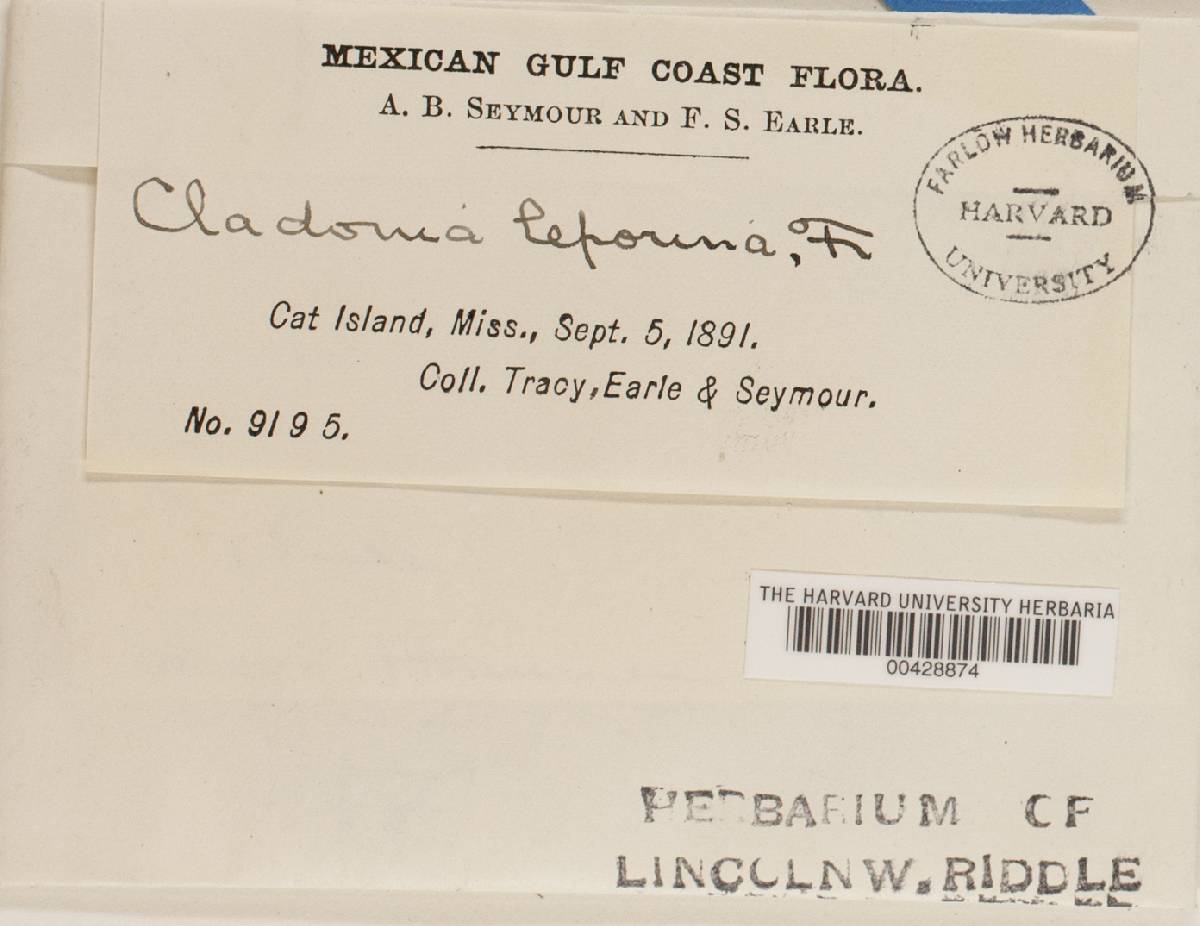 MEXICAN GULF COAST FLORA.
A. B. SEYMOUR AND F. S. EARLE.
FARLOW HERBARIUM
HARVARD
UNIVERSITY
Cladonia leporina, Fr
Cat Island, Miss., Sept. 5, 1891.
Coll. Tracy, Earle & Seymour.
No. 9195.
THE HARVARD UNIVERSITY HERBARIA
00428874
HERBARIUM OF
LINCOLN W. RIDDLE